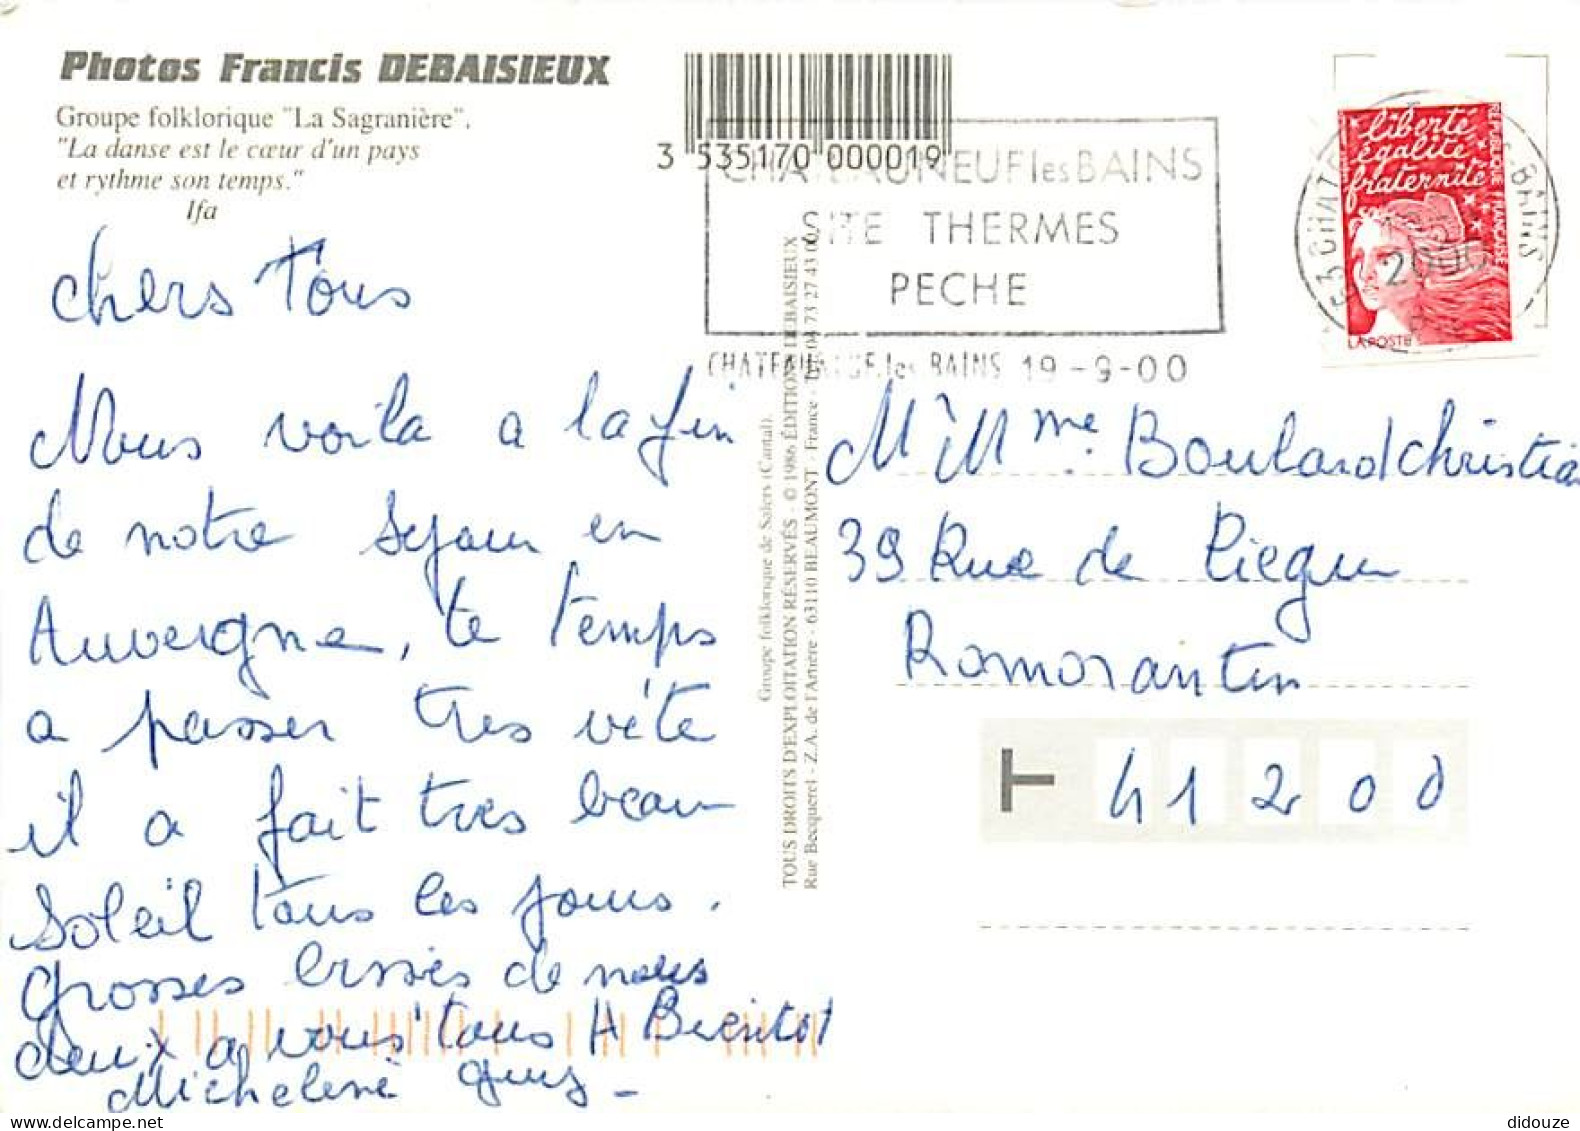 Photos Francis DEBAISIEUX
Groupe folklorique "La Sagranière".
"La danse est le cœur d'un pays
et rythme son temps."
Ifa
3 535170 000019
CHATEAUNEUF les BAINS
SITE THERMES
PECHE
CHATEAUNEUF. les BAINS 19-9-00
liberté
égalité
fraternité
REPUBLIQUE FRANÇAISE
LA POSTE
2000
chers Tous
Nous voila a la fin
de notre sejour en
Auvergne, le temps
a passer tres vite
il a fait tres beau
soleil tous les jours.
Grosses bises de nous
deux a vous tous A Bientot
Michelene Guy -
Groupe folklorique de Salers (Cantal).
TOUS DROITS D'EXPLOITATION RÉSERVÉS - © 1986 ÉDITION DEBAISIEUX
Rue Becquerel - Z.A. de l'Artière - 63110 BEAUMONT - France - Tél. 04 73 27 43 00
M M me Boulard Christian
39 Rue de
Romorantin
41200
didouze